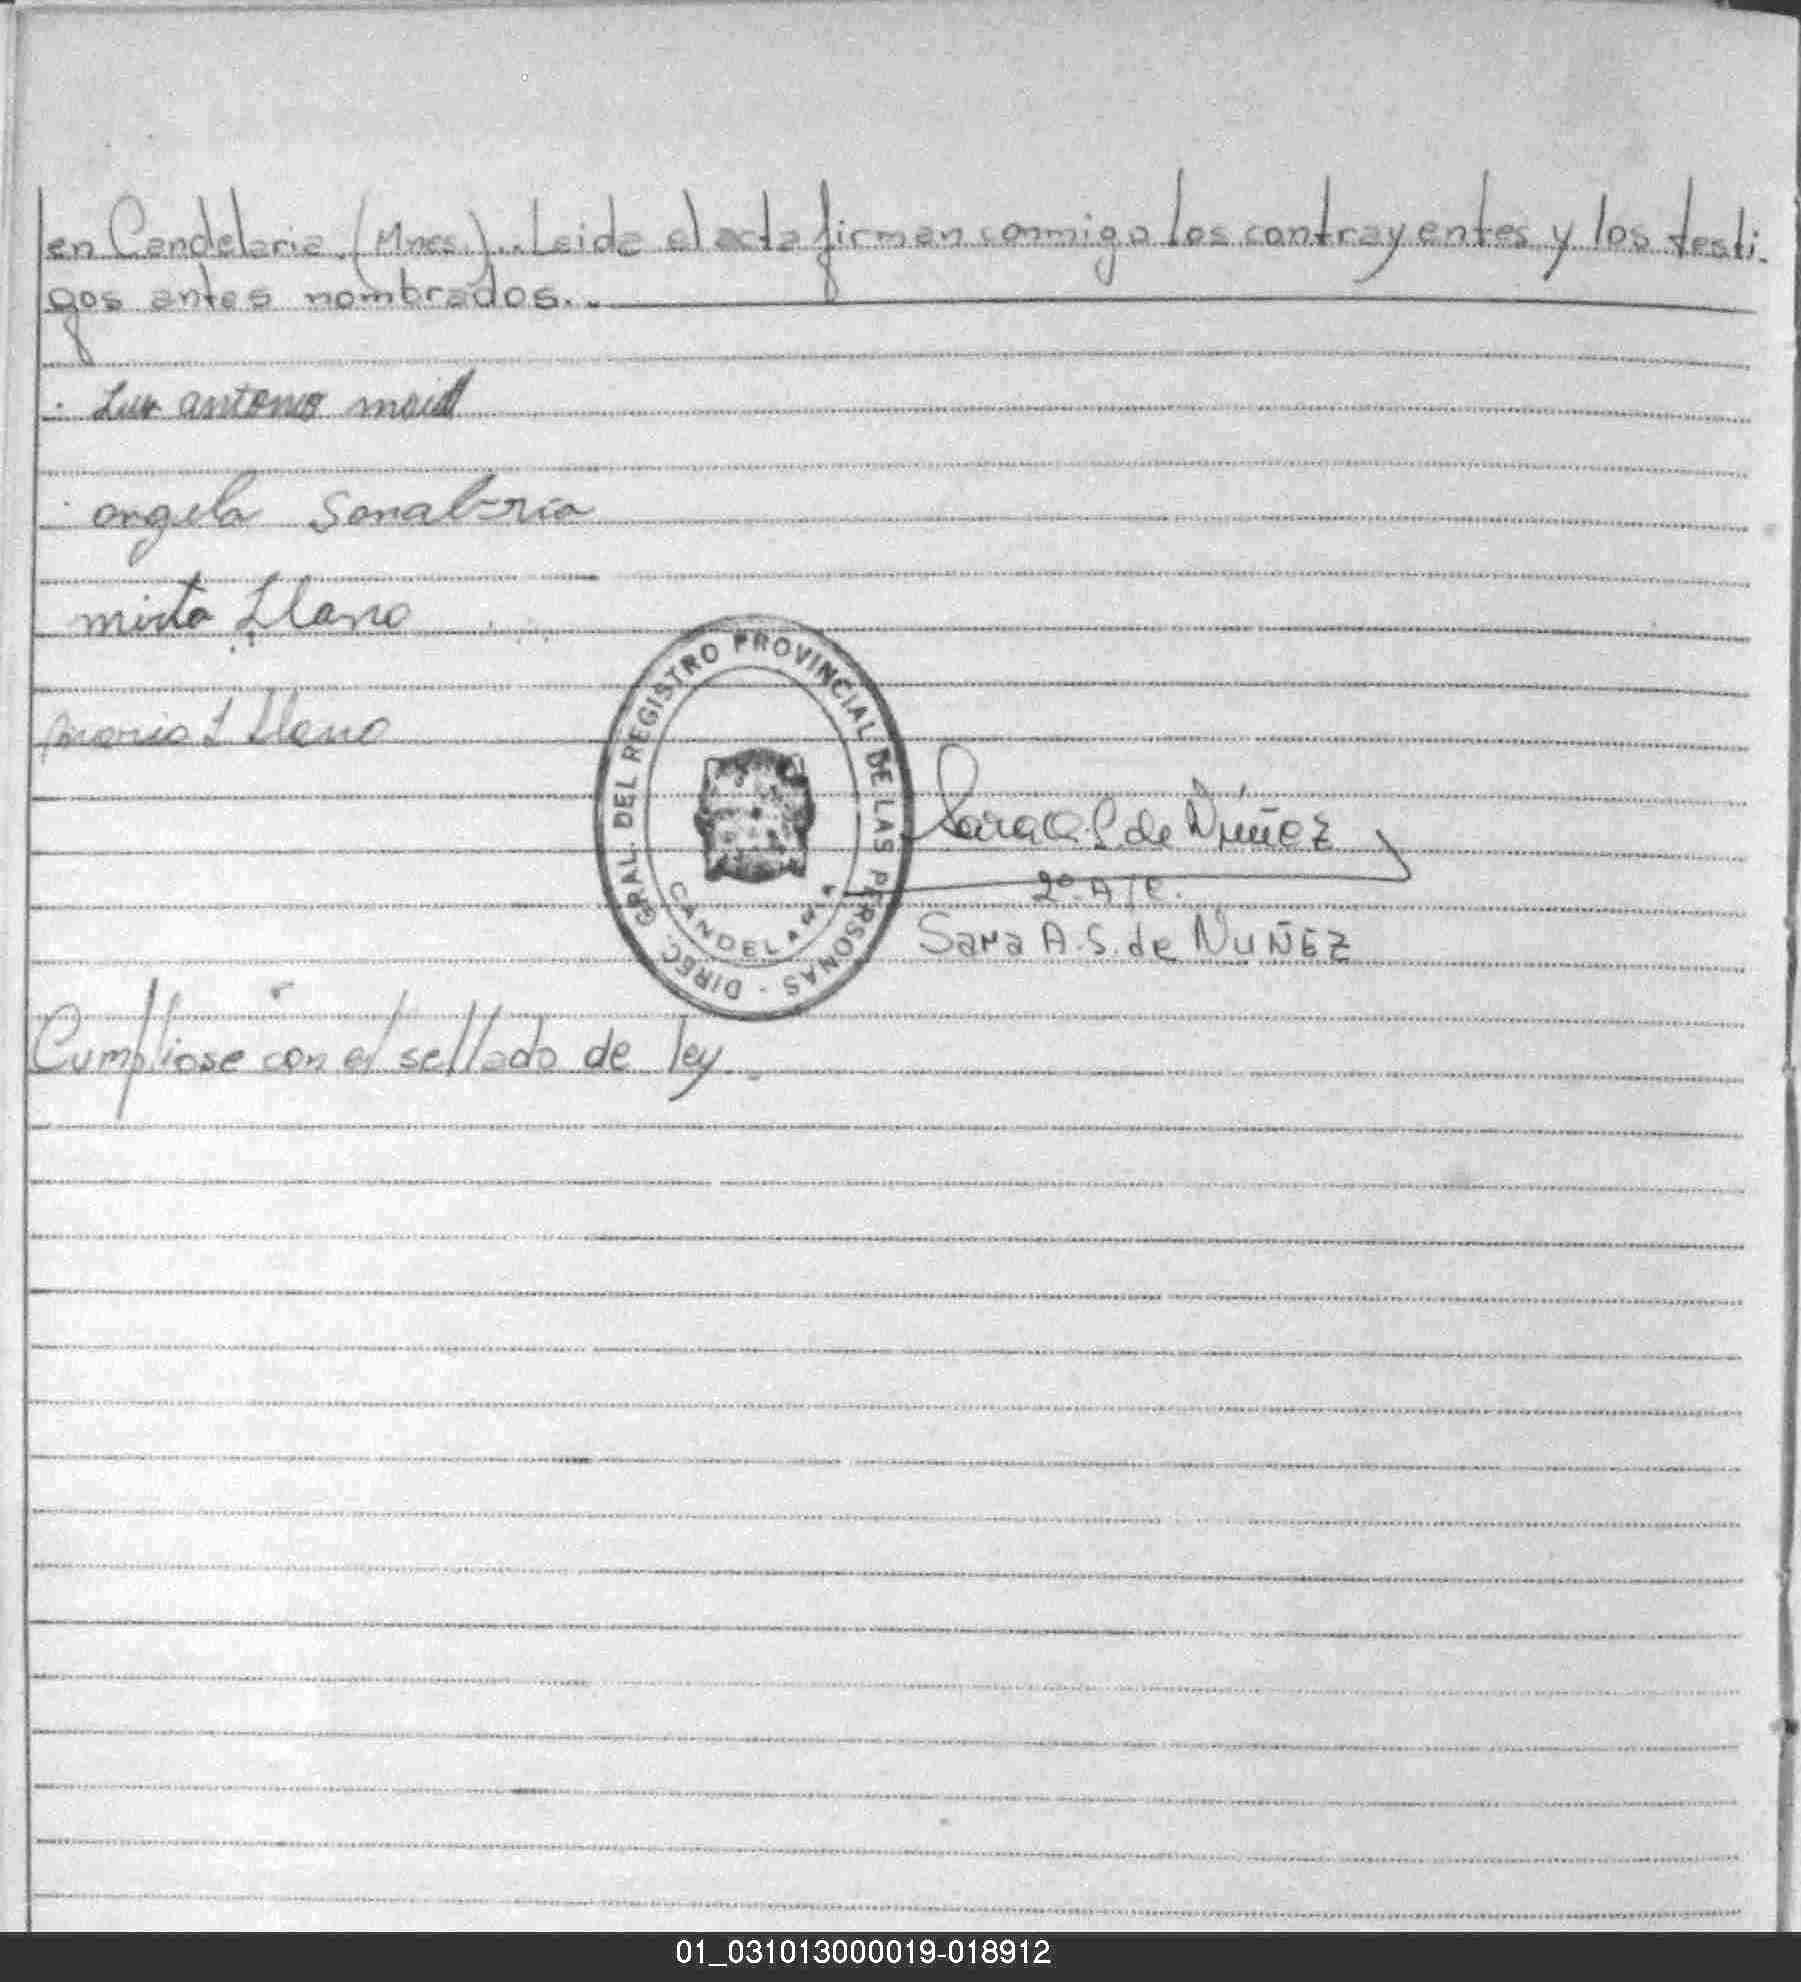 en Candelaria (Mnes.)... Leida el acta firman conmigo los contrayentes y los testi-
gos antes nombrados..
Luis antonio
angela Sanabria
mirta Llano
maria L Llano
DIREC. GRAL. DEL REGISTRO PROVINCIAL DE LAS PERSONAS -
CANDELARIA
Sara A. S. de Núñez
2º A/C.
Sara A. S. de NUÑEZ
Cumpliose con el sellado de ley.-
01_031013000019-018912